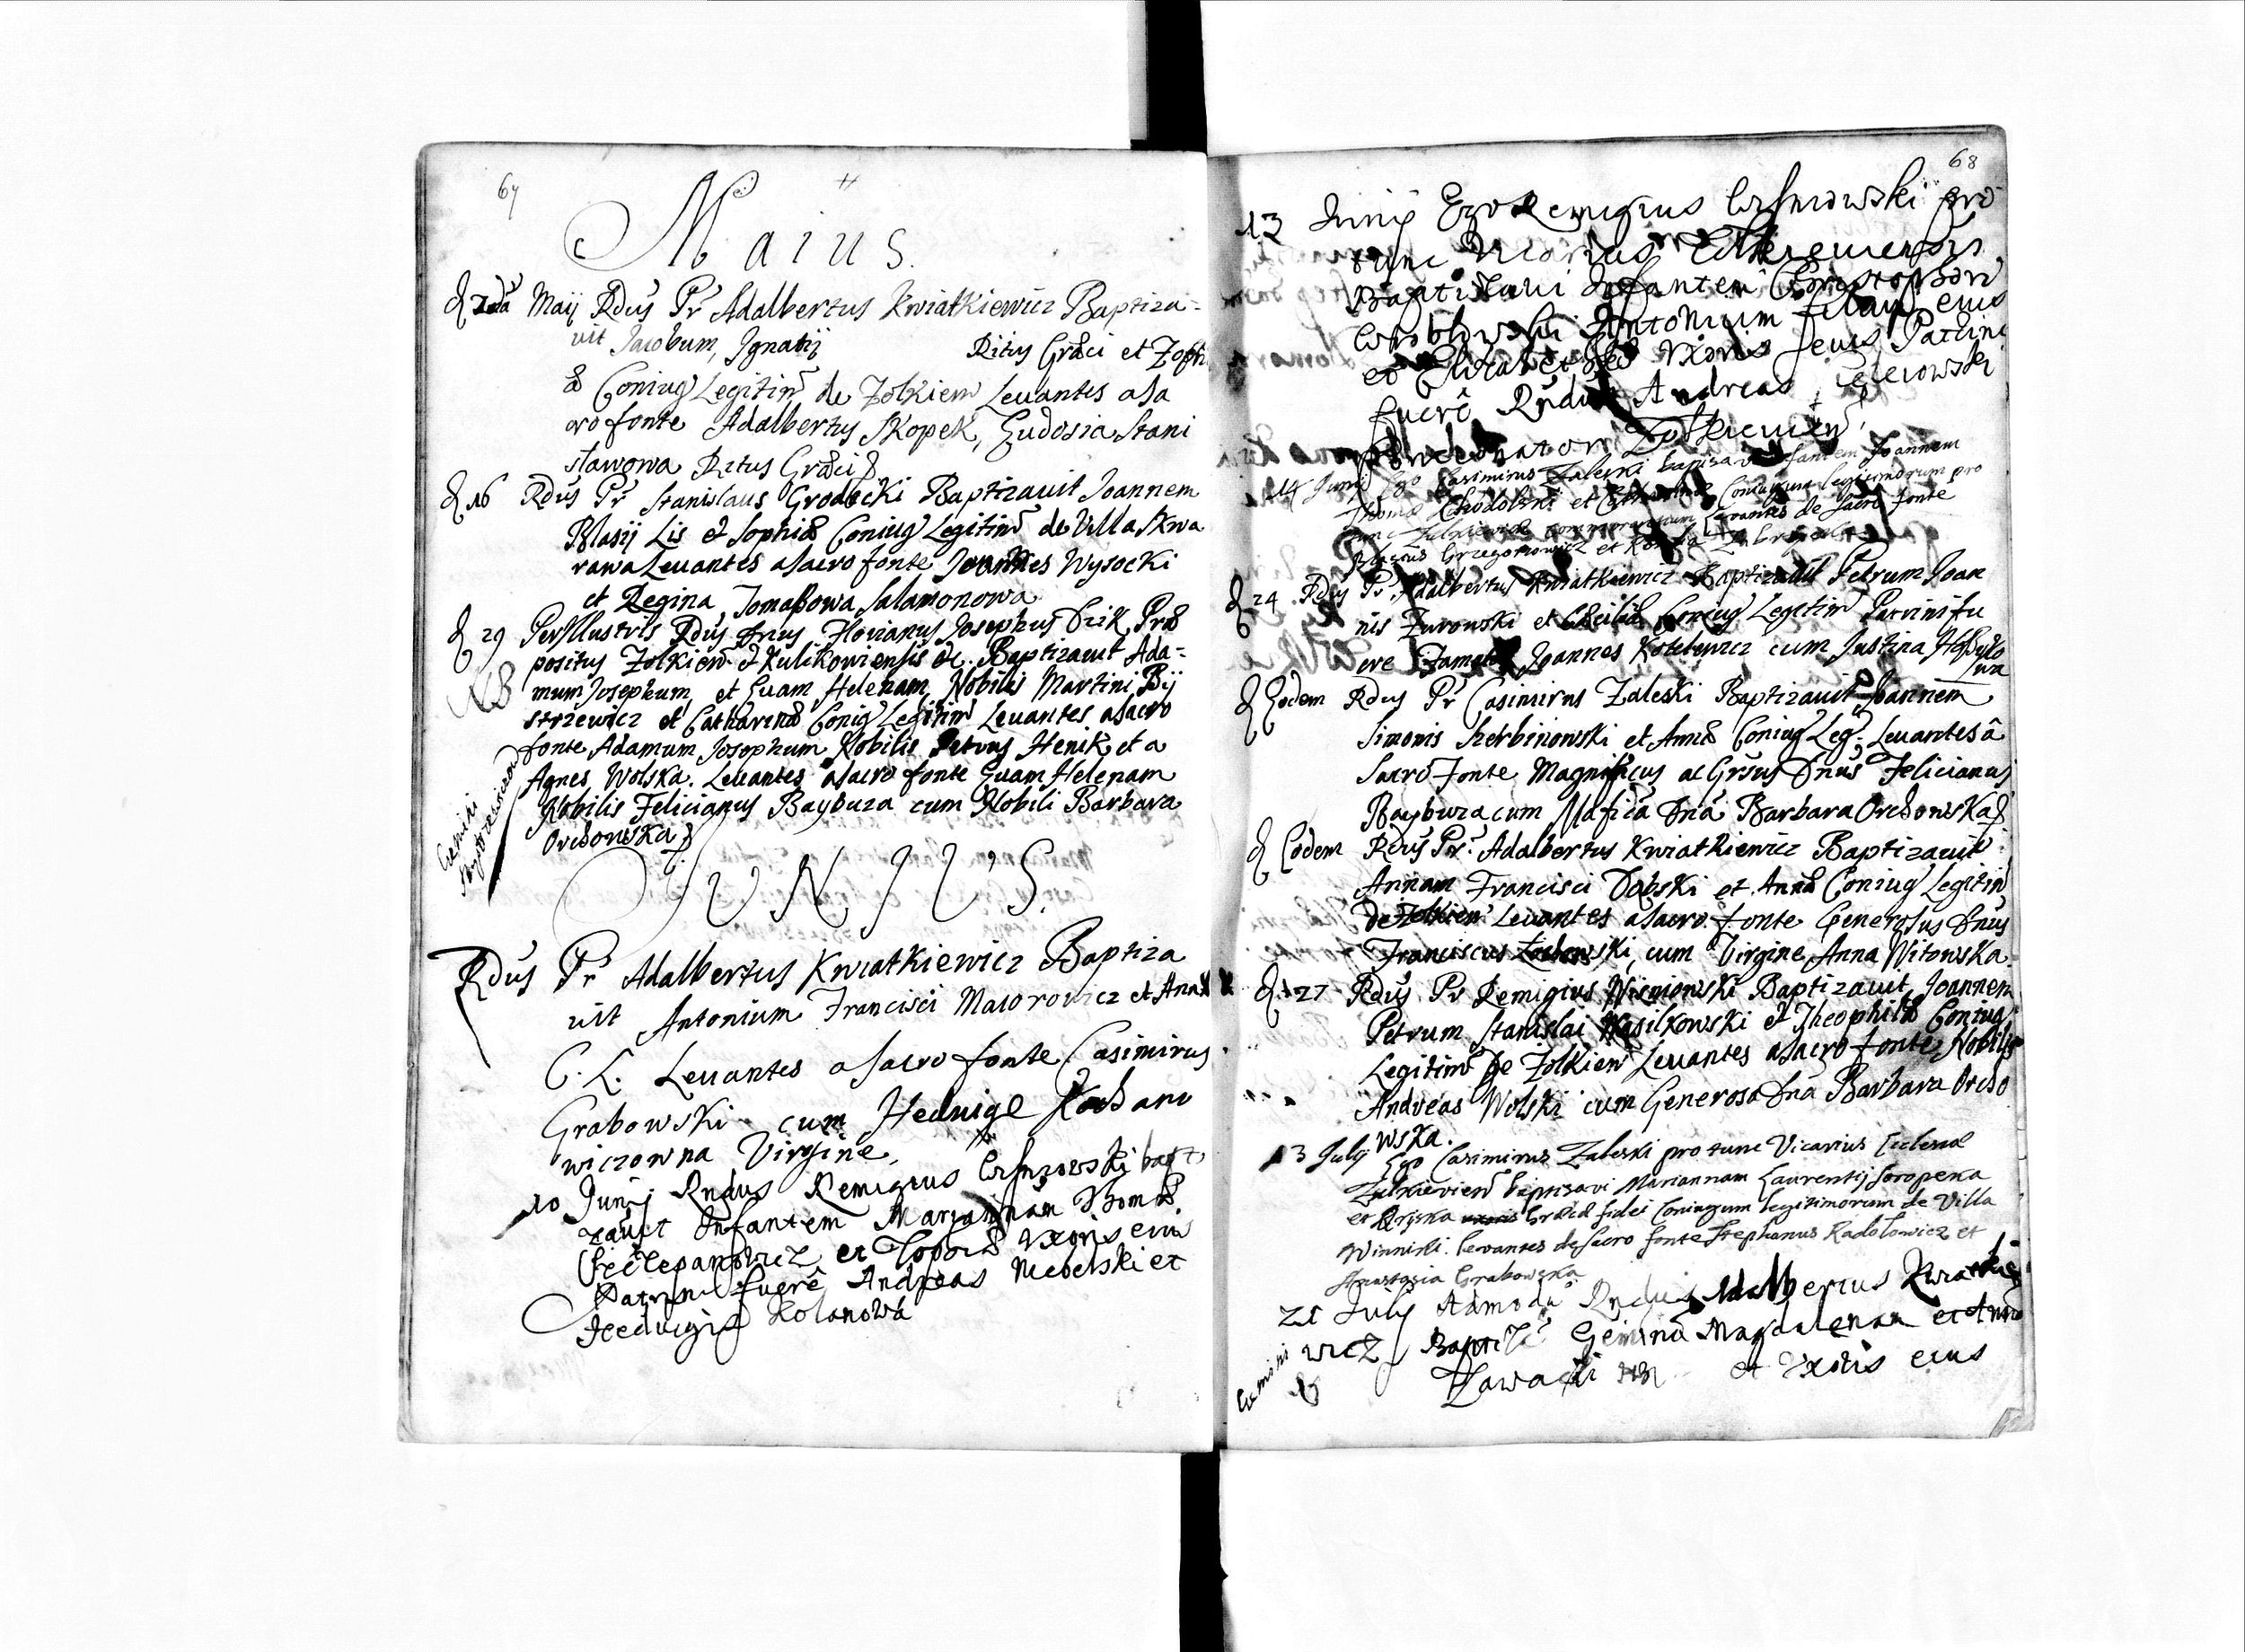 67
Maius.
2da Maij Rdus Pr Adalbertus Kwiatkiewicz Baptiza-
uit Jacobum, Ignatij Ritus Græci et Zophi
æ Coniug Legitim de Zolkiew Leuantes a Sa
cro fonte Adalbertus Skopek, Eudosia Stani
sławowa Ritus Græci
16 Rdus Pr Stanislaus Grodecki Baptizauit Joannem
Blasij Lis et Sophiæ Coniug Legitim de Villa Skwa
rawa Leuantes a Sacro fonte Joannes Wysocki
et Regina Tomaszowa Salamonowa
29 Perillustris Rdus Dnus Florianus Josephus Præ
positus Zolkiew et Kulikowiensis &c. Baptizauit Ada-
NB mum Josephum, et Euam Helenam, Nobilis Martini Bij
strzewicz et Catharinæ Coniug Legitim Leuantes a Sacro
fonte Adamum Josephum Nobilis Petrus Henik et a
Agnes Wolska. Leuantes a Sacro fonte Euam Helenam
Nobilis Felicianus Baybuza cum Nobili Barbara
Orchowska
Gemini
JUNIUS.
Rdus Pr Adalbertus Kwiatkiewicz Baptiza
uit Antonium Francisci Maiorowicz et Annæ
C. L. Leuantes a Sacro fonte Casimirus
Grabowski cum Hedwige Kochano
wiczowna Virgine.
10 Junij Rndus Remigius Wisniowski bapti
zauit Infantem Mariannam Thomæ
Sczepanowicz et Zophiæ Vxoris eius
Patrini fuerê Andreas Mebelski et
Heduigis Kolanowa
68
13 Junij Ego Remigius Wisniowski pro
tunc Vicarius
Baptizaui Infantem Christophori
Wroblowski Antonium filium eius
et Elizabethæ Vxoris seuis Patrini
fuerê Rndus Andreas
14 Junij Ego Casimirus Zaleski baptisavi Infantem Joannem
Thomæ Chodolski et Catharinæ Coniugum legitimorum pro
tunc Zulkieviæ commorantium Levantes de Sacro fonte
Blasius Grzegorzowicz et
24 Rdus Pr Adalbertus Kwiatkiewicz Baptizauit Petrum Joan
nis Zurowski et Cæciliæ Coniug Legitim Patrini fu
ere Joannes cum Justina
wa
Eodem Rdus Pr Casimirus Zaleski Baptizauit Joannem
Simonis Szerbinowski et Annæ Coniug Leg. Leuantes â
Sacro Fonte Magnificus ac Grsus Dnus Felicianus
Baybuza cum Mafica Dna Barbara Orchowska
Eodem Rdus Pr. Adalbertus Kwiatkiewicz Baptizauit
Annam Francisci Dobski et Annæ Coniug Legitim
de Zolkiew Leuantes a Sacro fonte Generosus Dnus
Franciscus cum Virgine Anna Witowska
27 Rdus Pr Remigius Wisniowski Baptizauit Joannem
Petrum Stanislai Wasilkowski et Theophilæ Coniug
Legitim De Zolkiew Leuantes a Sacro fonte Nobilis
Andreas Wolski cum Generosa Dna Barbara Orcho
wska.
13 July Ego Casimirus Zaleski pro tunc Vicarius Ecclesiæ
Zulkievien baptisavi Mariannam Laurentij Soropeka
et Græcæ fidei Coniugum legitimorum de Villa
Winniki. levantes de Sacro fonte Stephanus Radolowicz et
Anastasia Grabowska
21 July Admodu Rndus Adalbertus Kwiatkie
wicz Baptiza Gemina Magdalenam et Anna
Zawacki NN et Vxoris eius